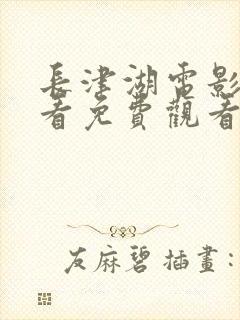 長津湖電影
看免費觀看
友麻碧 插畫: